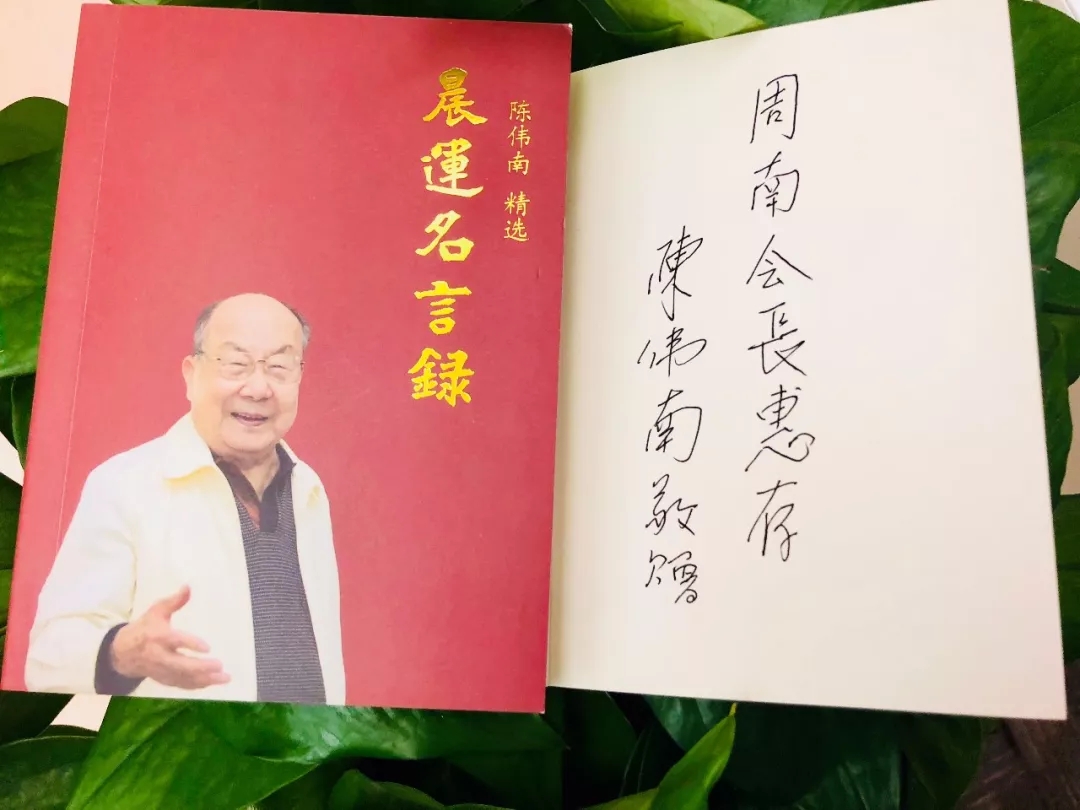 陈伟南 精选
晨運名言録
周南会長惠存
陳伟南敬贈